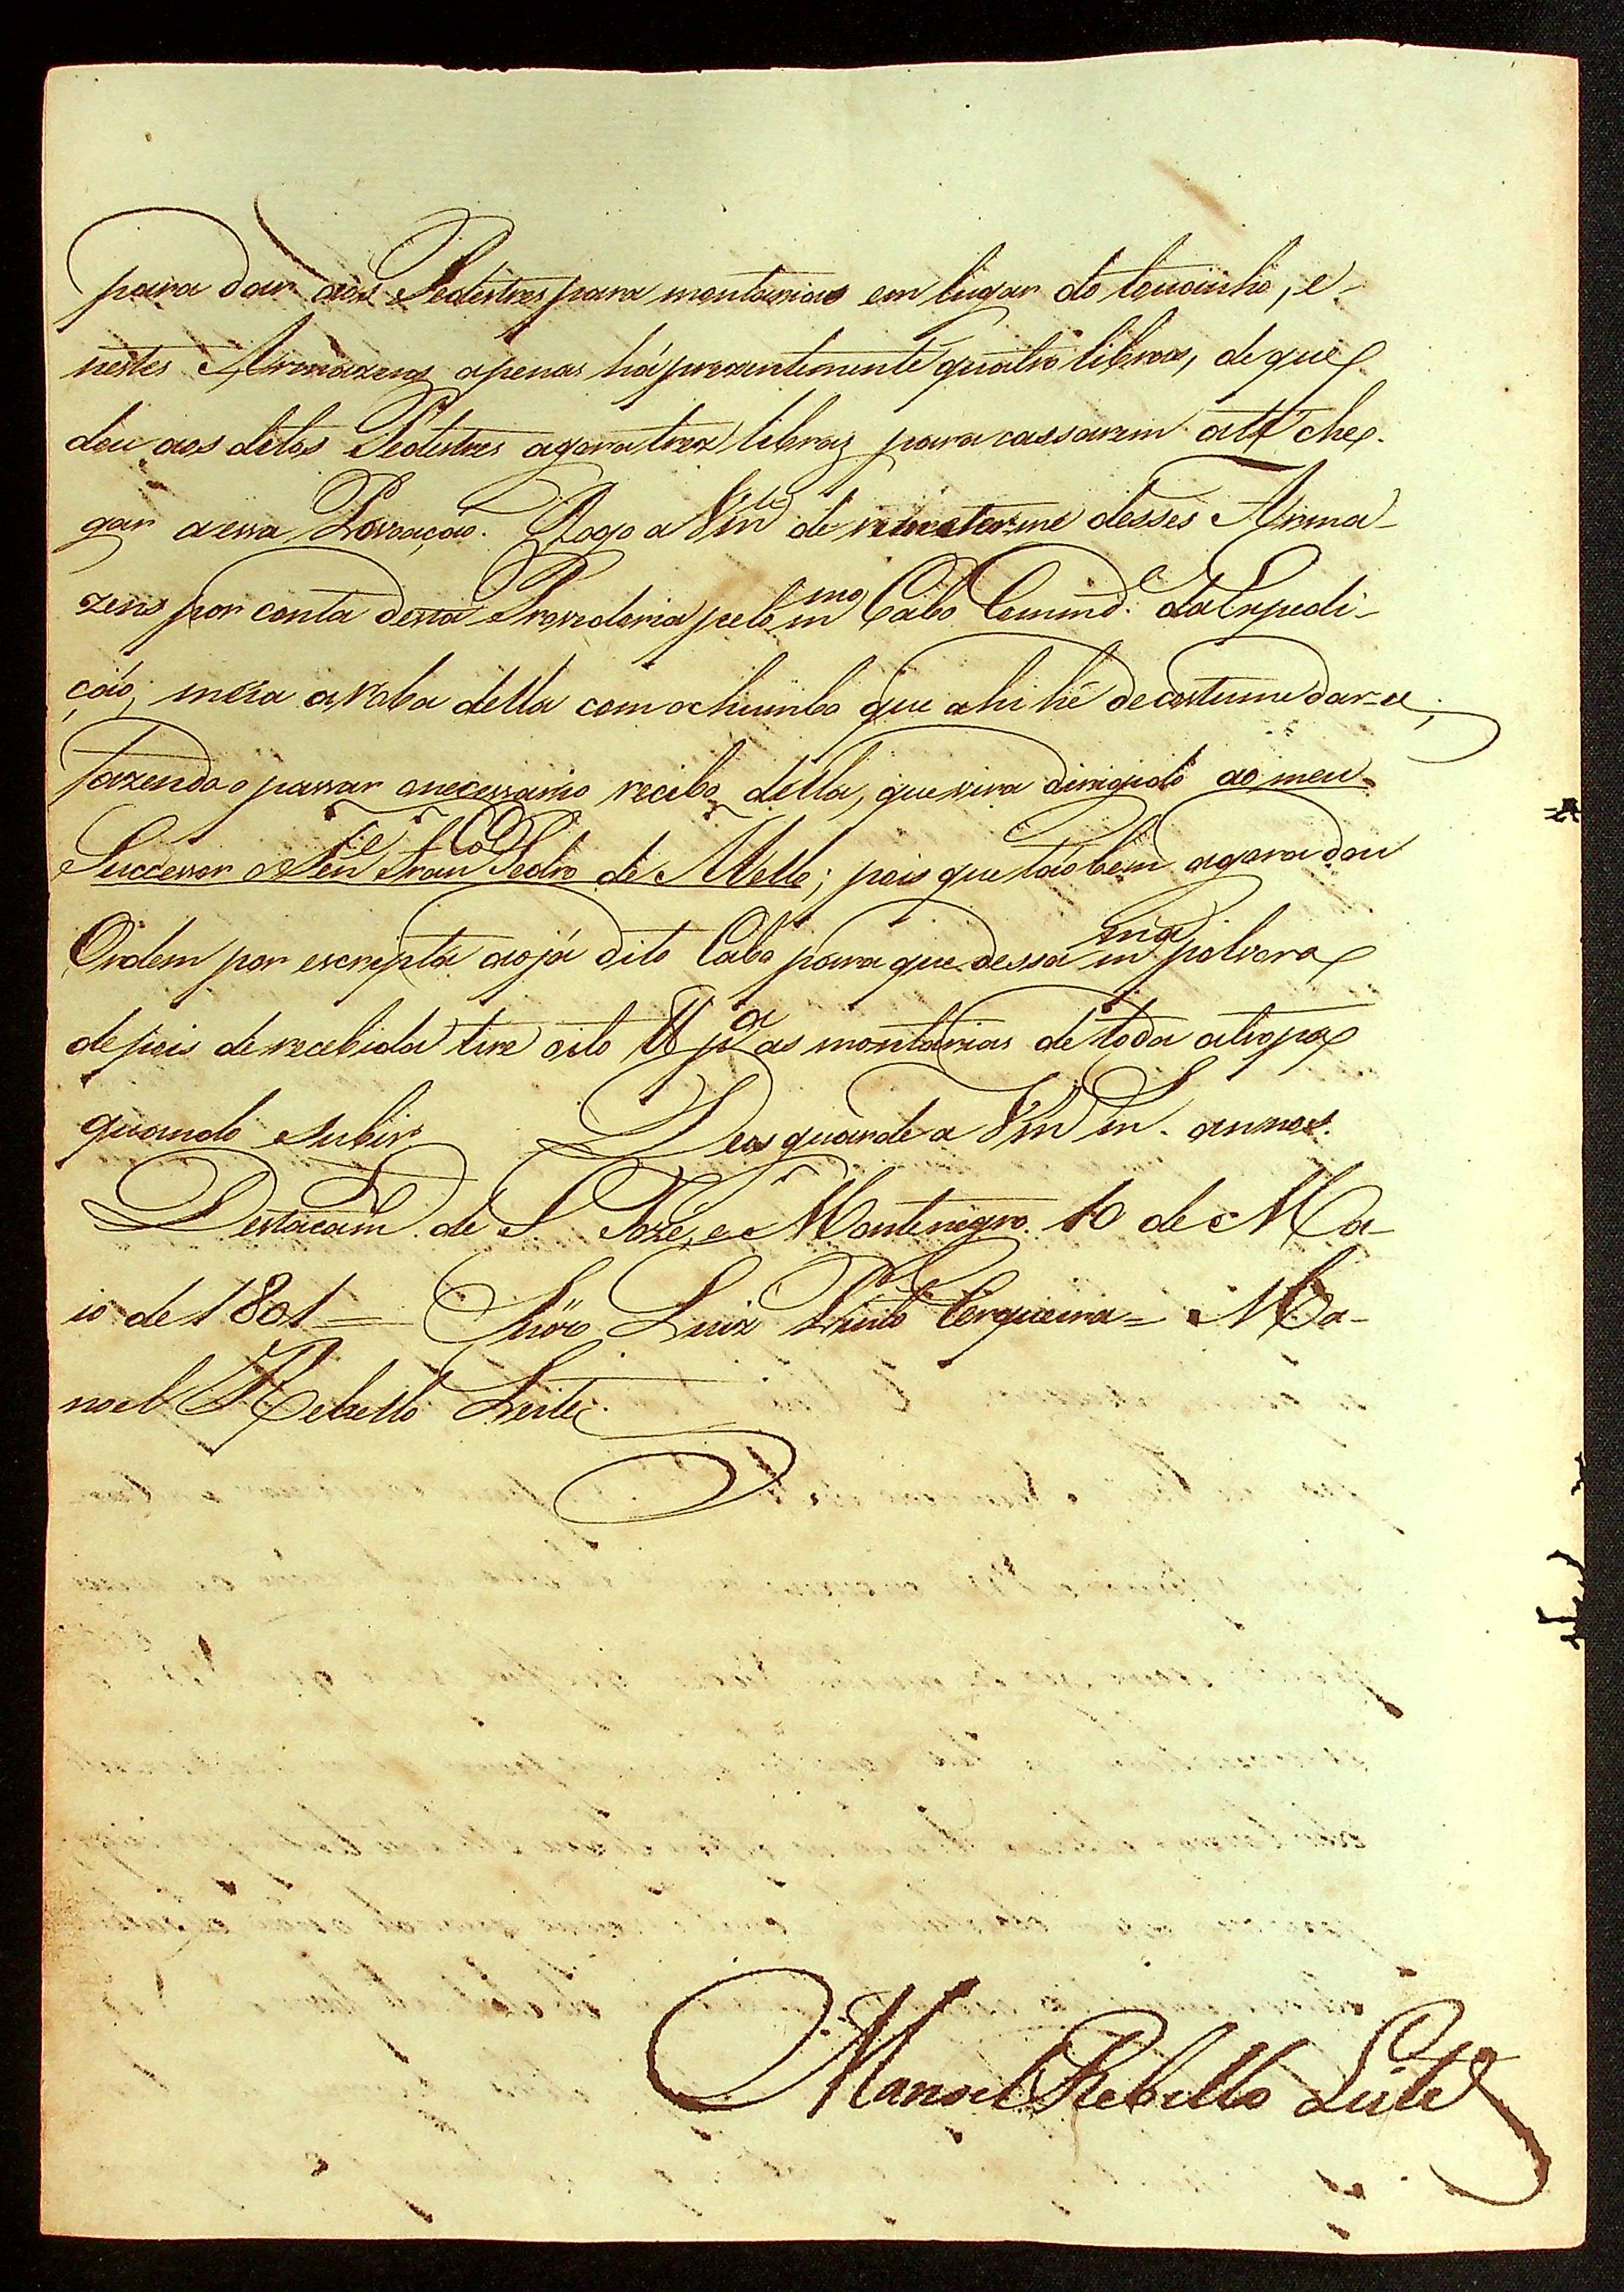 para dar aos Pedestres para montarias em lugar do toucinho, e
nestes Armazens apenas há prezentemente quatro libras, de que
dou aos ditos Pedestres agora trez libras para cassarem até che-
gar a essa Povoação. Rogo a Vm.ce de remeterme desses Arma-
zens por conta desta Provedoria pelo m.mo Cabo Comind.e da Expedi-
ção, meia arroba della com o chumbo que ahi hé de costume dar-se,
fazendo o passar o necessario recibo della, que vira dirigido ao meu
Successor o Ten.te Fran.co Pedro de Mello; pois que taobem agora dou
Ordem por escrepta ao já dito Cabo para que dessa m.ma polvora
depois de recebida tire oito lb p.a as montarias de toda a tropa
quando subir. Deos guarde a Vm m. annos.
Destacam.to de S. Jozé, e Montenegro 10 de Ma-
io de 1801 = Snro Luiz Pinto Cerqueira = Ma-
noel Rebello Leite.
Manoel Rebello Leite